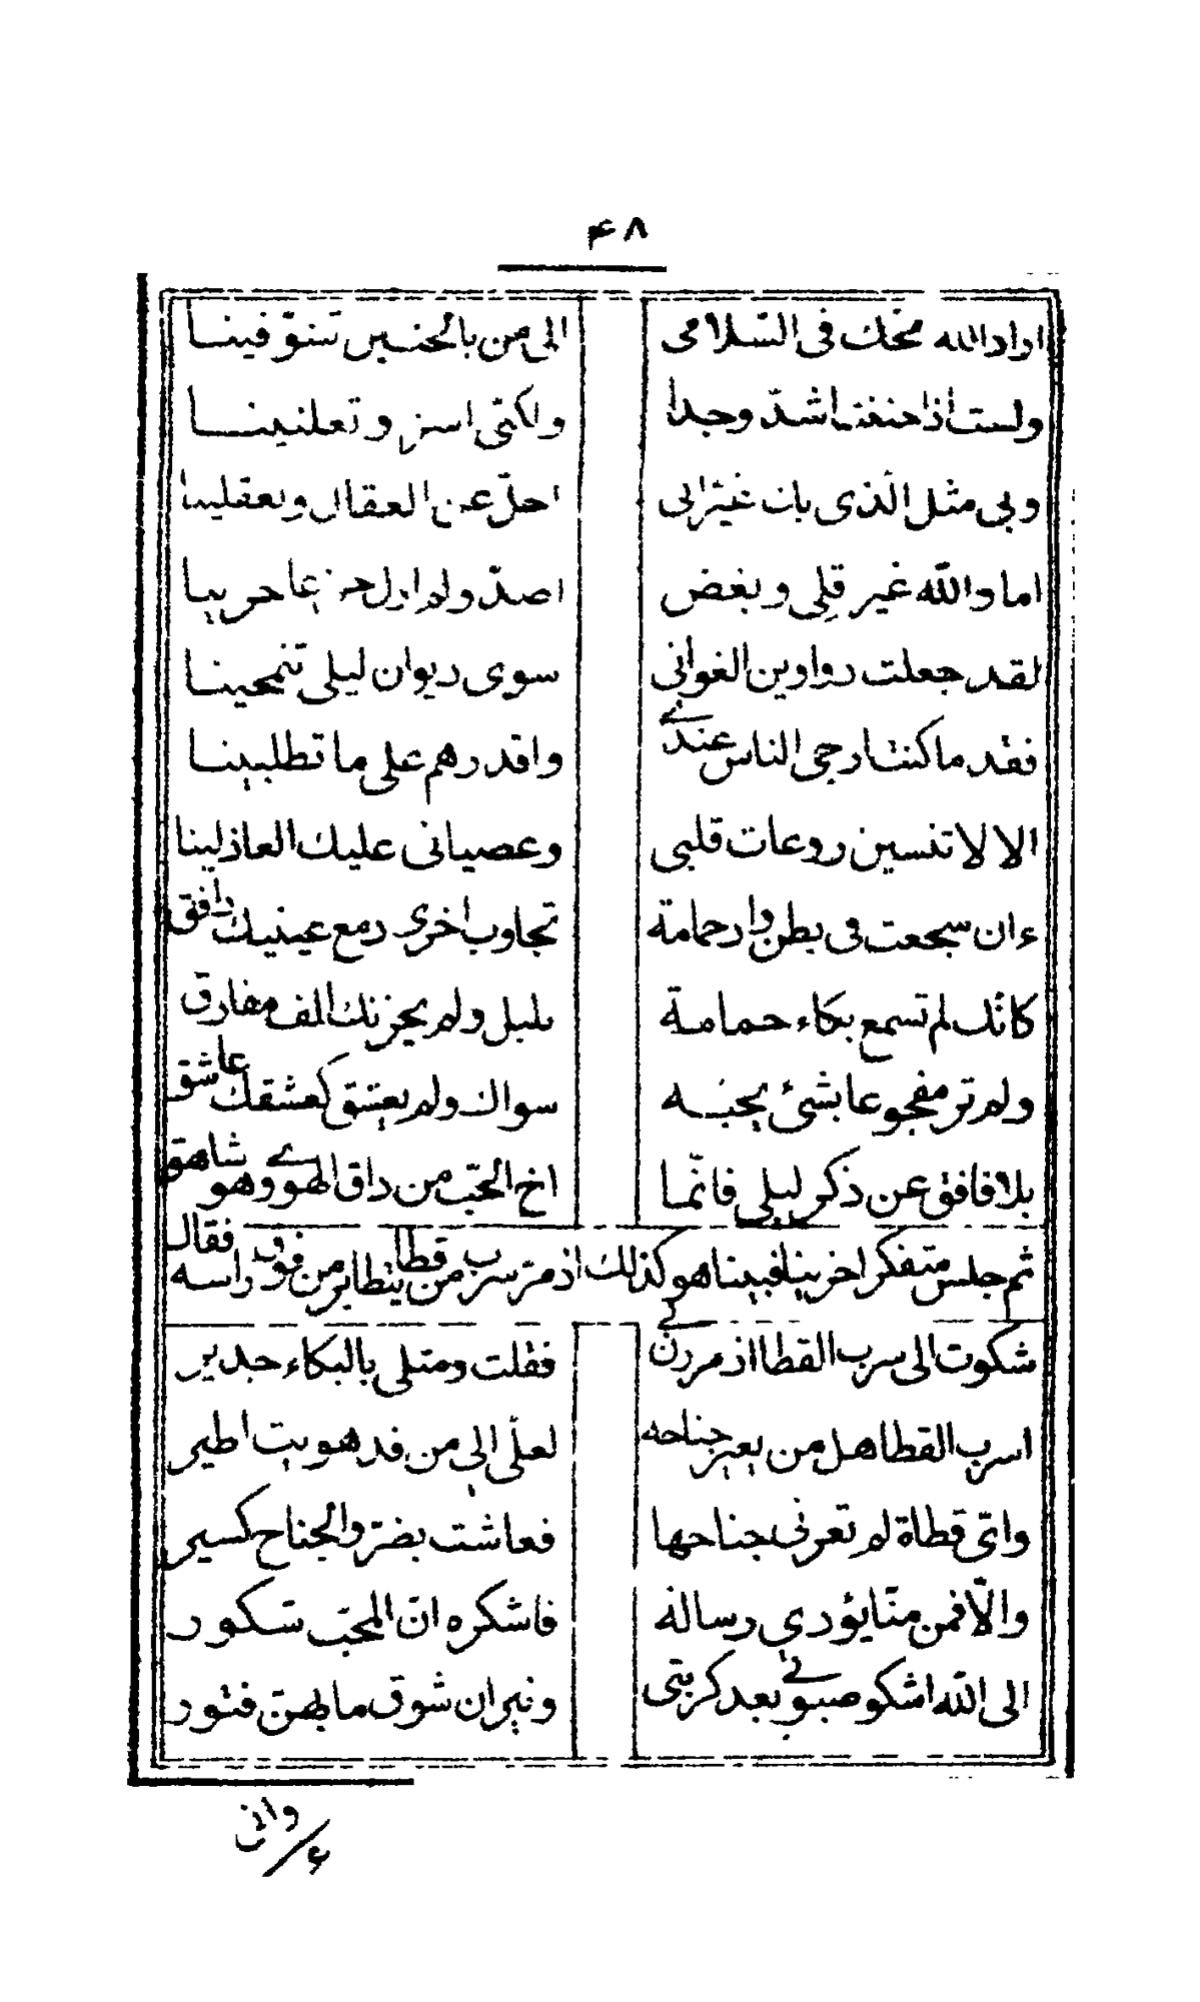 ۴۸
اراد الله مخّك فى السّلامى الى من بالحنين تشوّقينا
ولست اذا حننت اشدّ وجدا ولكنّى اسرّ وتعلنينا
وبى مثل الّذى بك غير انى احلّ عن العقال وتعقلينا
اما والله غير قلى وبغض اصدّ ولم ازل جزعا حزينا
لقد جعلت دواوين الغوانى سوى ديوان ليلى تنمحينا
فقد ما كنت ارجى الناس عندے واقدرهم على ما تطلبينا
الا لا تنسين روعات قلبى وعصيانى عليك العاذلينا
ءان سجعت فى بطن واد حمامة تجاوب اخرى دمع عينيك دافق
كانّك لم تسمع بكاء حمامة بليل ولم يحزنك الف مفارق
ولم تر مفجوعا بشئ يحبّه سواك ولم يعشق كعشقك عاشق
بلا فافق عن ذكر ليلى فانّما اخ الحبّ من ذاق الهوے وهو شاهق
ثم جلس متفكرا حزينا فبينا هو كذلك اذ مرّ سرب من قطا يتطاير من فوق راسه فقال
شكوت الى سرب القطا اذ مررن بے فقلت ومثلى بالبكاء جدير
اسرب القطا هل من يعير جناحه لعلّى الى من قد هويت اطير
واىّ قطاة لم تعرنى جناحها فعاشت بضرّ والجناح كسير
والّا فمن منّا يؤدي رسالة فاشكره انّ المحبّ شكور
الى الله اشكو صبوتے بعد كربتى ونيران شوق ما بهنّ فتور
وانى
۶